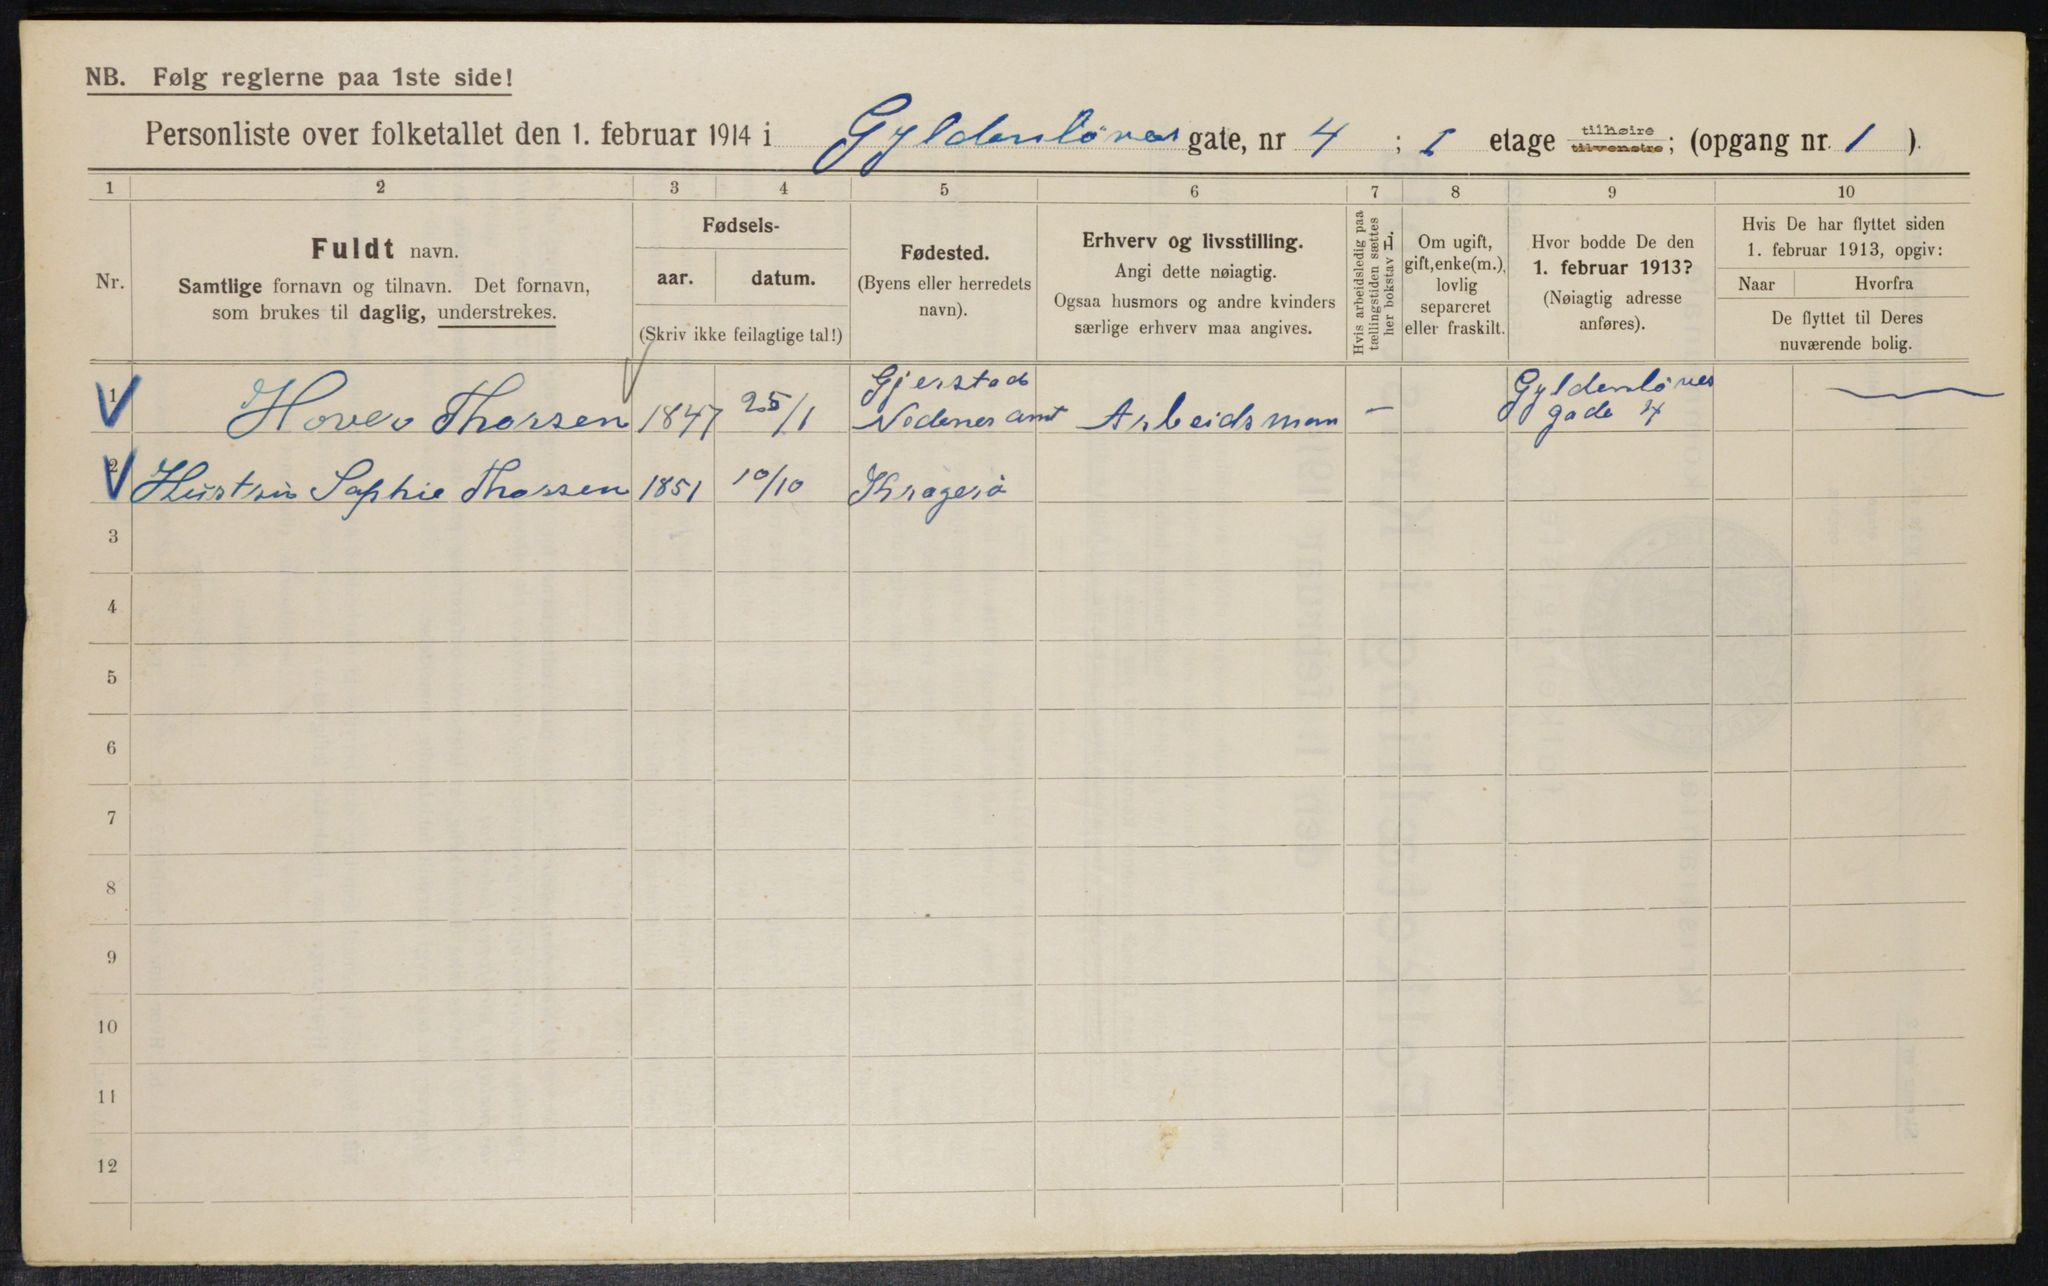 NB. Følg reglerne paa 1ste side!
Personliste over folketallet den 1. februar 1914 i Gyldenløves gate, nr 4 ; I etage tilhøire tilvenstre; (opgang nr. 1 ).
1 2 3 4 5 6 7 8 9 10
Nr.
Fuldt navn.
Samtlige fornavn og tilnavn. Det fornavn,
som brukes til daglig, understrekes.
Fødsels-
aar. datum.
(Skriv ikke feilagtige tal!)
Fødested.
(Byens eller herredets
navn).
Erhverv og livsstilling.
Angi dette nøiagtig.
Ogsaa husmors og andre kvinders
særlige erhverv maa angives.
Hvis arbeidsledig paa
tællingstiden sættes
her bokstav L.
Om ugift,
gift, enke(m.),
lovlig
separeret
eller fraskilt.
Hvor bodde De den
1. februar 1913?
(Nøiagtig adresse
anføres).
Hvis De har flyttet siden
1. februar 1913, opgiv:
Naar Hvorfra
De flyttet til Deres
nuværende bolig.
1 Hover Thorsen 1847 25/1 Gjerstad Nedenes amt Arbeidsman — Gyldenløves gade 4
2 Hustru Sophie Thorsen 1851 10/10 Kragerø
3
4
5
6
7
8
9
10
11
12